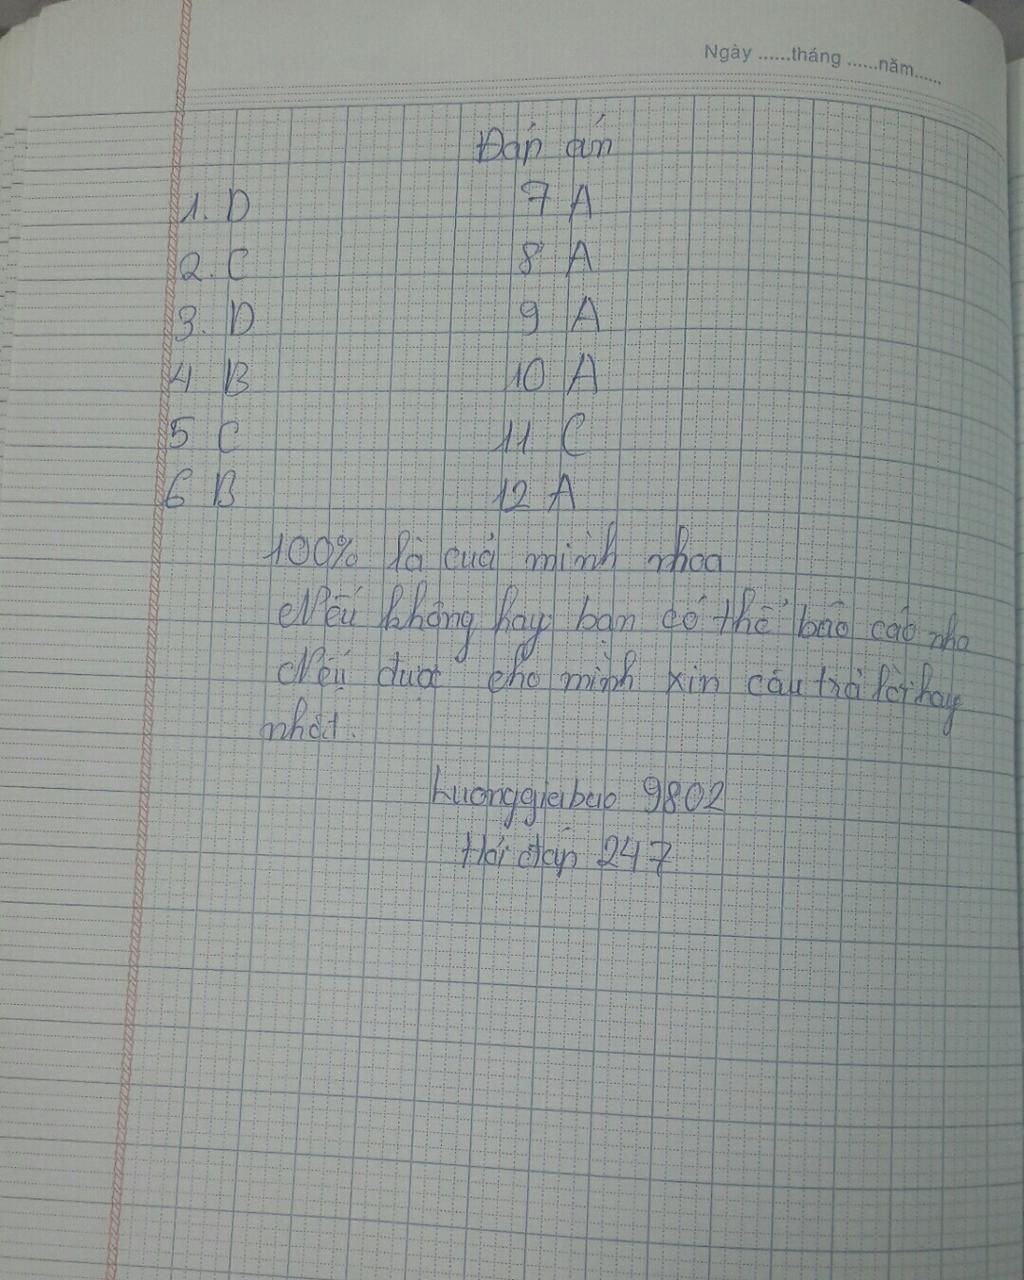 Ngày ......tháng ......năm......
Đáp án
1. D 7 A
2. C 8 A
3. D 9 A
4 B 10 A
5 C 11 C
6 B 12 A
100% là cuả mình nhoa
Nếu không hay bạn có thể báo cáo nha
Nếu được cho mình xin câu trả lời hay
nhất.
Luonggiabao 9802
Hỏi đáp 247